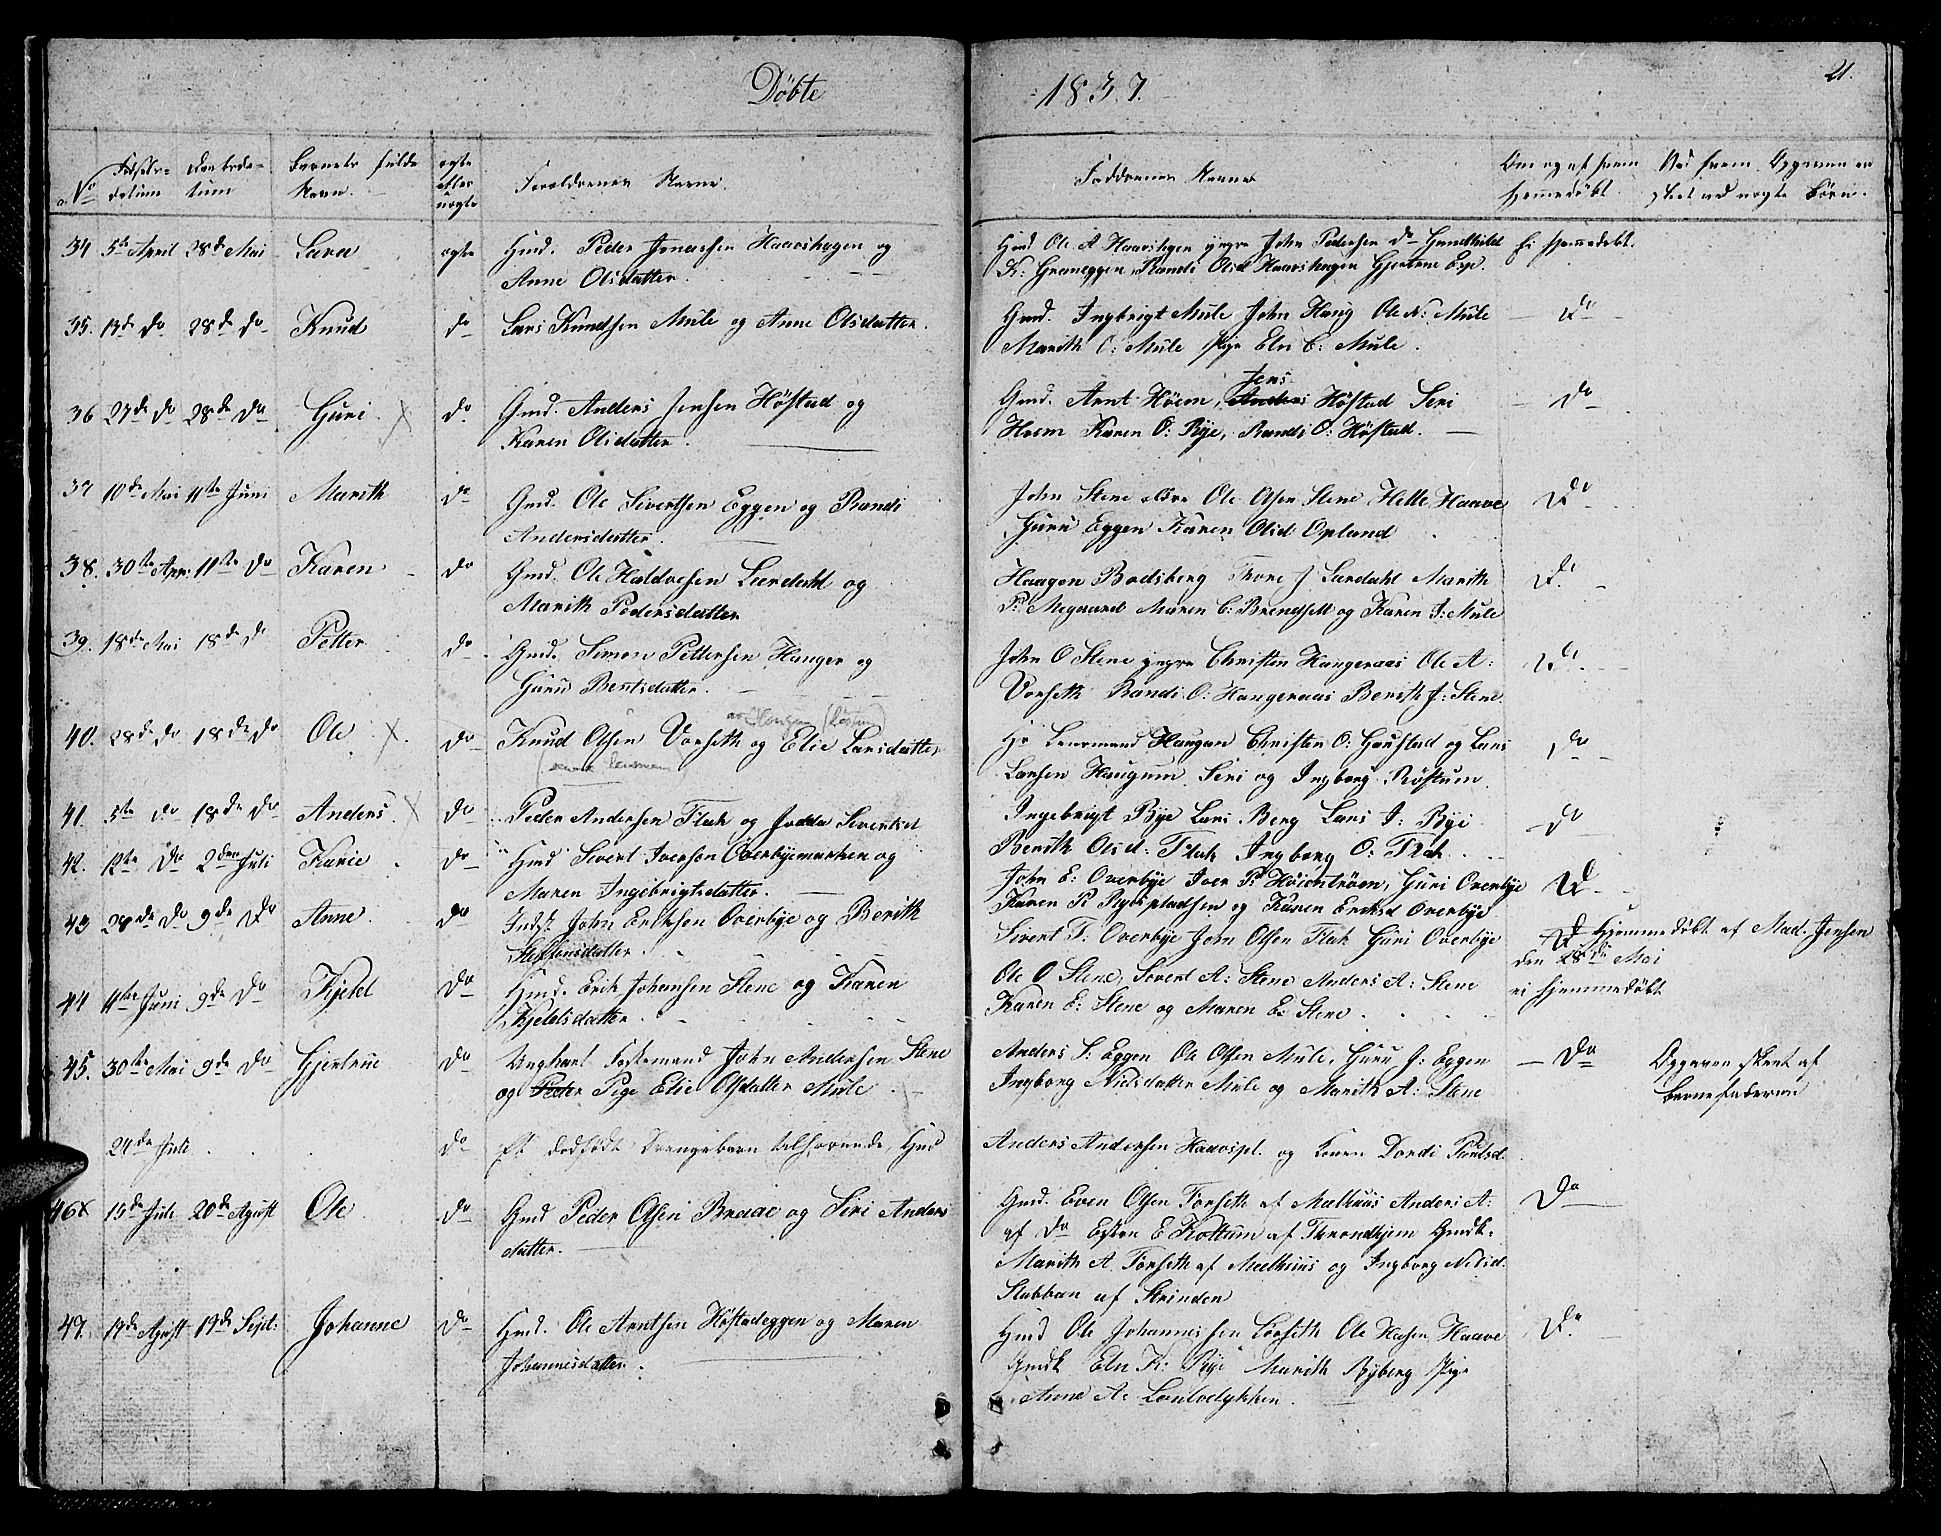 Döbte
1837.
21.
No
Födsels-
datum
Daabsda-
tum
Barnets fulde
Navn.
ægte
eller
uægte
Forældrenes Navne.
Faddrenes Navne
Om og af hvem
hjemmedöbt.
Ved hvem Opgaven er
skeet ved uægte Börn.
34 5te April 28de Mai Sara ægte Huusmd. Peder Jonassen Haavshagen og
Anne Olsdatter.
Ole A Haavshagen yngre John Pedersen Do Gundhild
K: Graneggen, Randi Olsd Haavshagen Gjertrue Esp. Ei hjemmedöbt.
35. 13de do 28de do Knud do Lars Knudsen Mule og Anne Olsdatter.
Gmd. Ingbrigt Mule John Haug Ole K: Mule Do
Marith O: Mule Pige Eln C: Mule.
36 27de do 28de do Guri X do Gmd. Anders Jensen Höstad og
Karen Olsdatter.
Jens
Gmd. Arnt Höem, Anders Höstad Seri Do
Hoem Karen O: Rye, Randi O: Höstad.
37 10de Mai 11te Juni Marith do Gmd. Ole Sivertsen Eggen og Randi
Andersdatter.
John Stene ældre Ole Olsen Stene Helle Haave Do
Guru Eggen Karen Olsd Opland
38. 30te Apr: 11te do Karen do Gmd. Ole Haldorsen Lerdahl og
Marith Pedersdatter
Haagen Bodsberg Thore J Lerdahl Marith Do
P: Megaard Maren C: Brendsett og Karen J: Mule
39. 18de Mai 18de do Petter do Gmd. Simon Pettersen Hanger og
Guru Bentsdatter.
John O Stene yngre Christen Hangeraas Ole A: Do
Vorseth Randi O: Hangeraas Berith J: Stene
40. 28de do 18de do Ole X. do Knud Olsen Vorseth og Elie Larsdatter
Hr Lensmand Haugan Christen O: Haustad og Lars Do
Larsen Haugum Seri og Ingborg Röstum
41. 5te do 18de do Anders X do Peder Andersen Flak og Jodda Sivertsd
Ingebrigt Rye Lars Berg Lars J: Rye Do
Berith Olsd: Flak Ingborg O: Flak.
42. 12te Do 2den Juli Karie do Hmd Sivert Iversen Overbyemarken og
Maren Ingebrigtsdatter.
John E: Overbye Iver P: Hoiemtröen, Guri Overbye Do
Karen P: Ryespladsen og Karen Eriksd Overbye
43 28de Do 9de Do Anne do Indst. John Eriksen Overbye og Berith
Steffensdatter.
Sivert T: Overbye John Olsen Flak Guri Overbye
Do Hjemmedöbt af Mad. Jensen
den 28de Mai
44 11te Juni 9de Do Kjeld Do Hmd. Erik Johansen Stene og Karen
Kjeldsdatter.
Ole O Stene, Sivert A: Stene Anders A: Stene ei hjemmedöbt
Karen E: Stene og Maren E: Stene.
45. 30te Mai 9de Do Gjertrue Do Ungkarl Fostemand John Andersen Stene
og Peder Pige Elie Olsdatter Mule
Anders S: Eggen Ole Olsen Mule, Guru J: Eggen Do Opgaven skeet af
Ingborg Nielsdatter Mule og Marith A: Stene Barnefaderen
24de Juli Do Et dödfödt Drengebarn tilhörende, Hmd Anders Andersen Haavspl. og Konen Dordi
46 X 15de Juli 20de August Ole do Gmd Peder Olsen Braae og Siri Anders
datter.
Gmd. Even Olsen Forseth af Malhuus Anders A: Do
af Do Esten E Kottum af Throndhjem Gmdk.
Marith A Forseth af Malhuus og Ingborg Nilsd.
Stubban af Strinden
47. 14de August 19de Sept: Johanne do Hmd. Ole Arntsen Höstadeggen og Maren
Johannesdatter.
Hmd Ole Johannessen Lorseth Ole Hasen Haave Do
Gmdk Eln K: Rye Marith Ryberg Pige
Anne A: